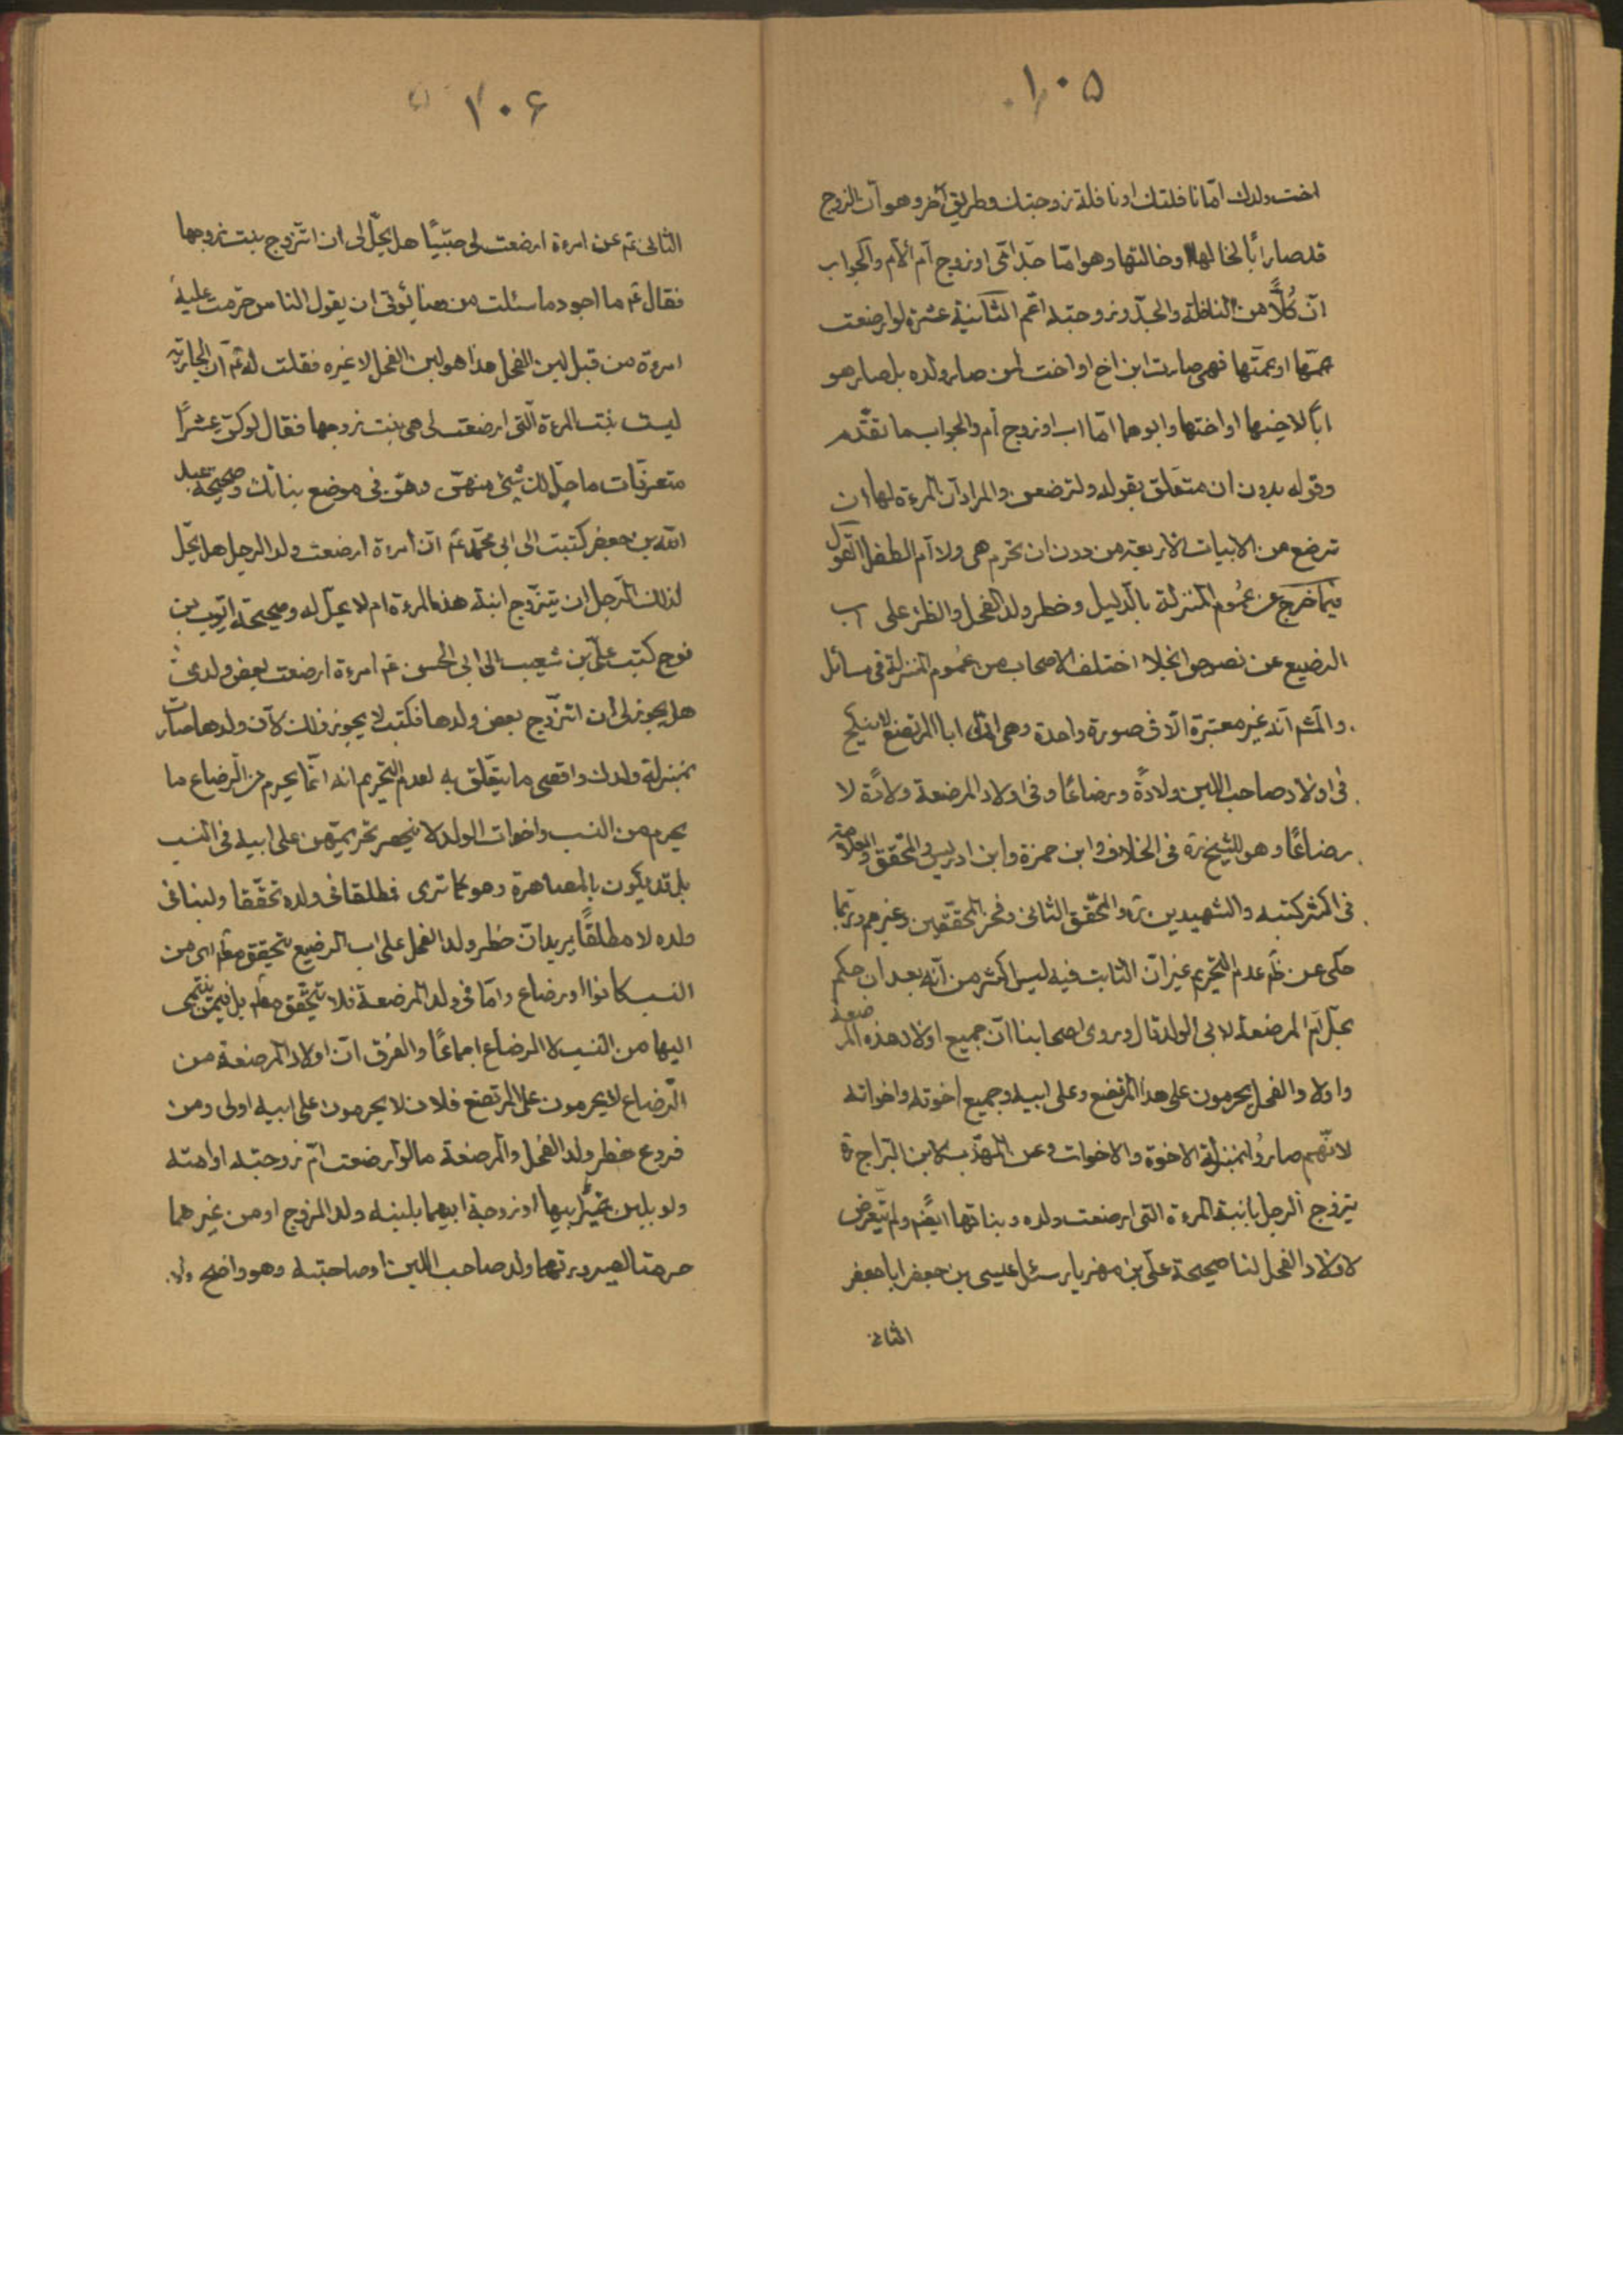 ١٠٥
اخت ولدك امّا نافلتك او نافلة زوجتك وطريق آخر وهو انّ الزوج
قد صار ابًا لخالها او خالتها وهو امّا جدّ امّى او زوج امّ الامّ والجواب
انّ كُلًّا من النافلة والجدّ وزوجته اعّم الثانية عشرة لو ارضعت
عمّها او عمّتها فهى صارت ابن اخ او اخت لمن صار ولده بل صار هو
ابًا لاخيها او اختها وابوهما امّا اب او زوج أم والجواب ما تقدّم
وقوله بدون ان متعلّق بقوله ولترضعن والمراد انّ المرءة لها ان
ترضع من الابيات الاربعة من دون ان تحرم هى ولا امّ الطفل القول
فيما خرج عن عُموم المنزلة بالدّليل وخطر ولد الفحل والظئر على اب
الرضيع عن نصوص انجلا اختلف الاصحاب من عُموم المنزلة فى مسائل
والمشّم انّه غير معتبرة الّا فى صورة واحدة وهى انّ ابا المرتضع لا ينكح
فى اولاد صاحب اللبن ولادةً ورضاعًا وفى اولاد المرضعة ولادًة لا
رضاعًا وهو للشيخ ره فى الخلاف وابن حمزة وابن ادريس والمحّقق والعلامة
فى اكثر كتبه والشهيدين ره والمحّقق الثانى وفخر المحقّقين وغيرهم وربّما
حكى عن ظّم عدم التحريم غير انّ الثابت فيه ليس اكثر من انّه بعد ان حكم
بحلّ امّ المرضعة لابى الولد قال وروى اصحابنا انّ جميع اولاد هذه المرضعة
واولاد الفحل يحرمون على هذا المرتضع وعلى ابيه وجميع اخوته واخواته
لانّهم صارُوا بمنزلة الاخوة والاخوات وعن المهذّب لابن البرّاج ره
يتزوج الرجل بابنة المرءة التى ارضعت ولده وبناتها ايضًم ولم يتعرض
لاولاد الفحل لنا صحيحة علّى بن مهزيار سئل عيسى بن جعفر ابا جعفر
الثانى
١٠۶
الثانى عم عن امرءة ارضعت لى صبّيًا هل يحّل لى ان اتزّوج بنت زوجها
فقال عم ما اجود ما سئلت من هنا يُوتى ان يقول الناس حرّمت عليه
امرءة من قبل لبن الفحل هذا هو لبن الفحل لا غيره فقلت له عم انّ الجارية
ليست بنت المرءة الّتى ارضعت لى هى بنت زوجها فقال لو كنّ عشرًا
متفرقات ما حلّ لك شئ منهنّ وهنّ فى موضع بناتك وصحيحة عبد
اللّه بن جعفر كتبت الى ابى محمّد عم انّ امرءة ارضعت ولد الرجل هل يحّل
لذلك الرّجل ان يتزّوج ابنة هذه المرءة ام لا يحلّ له وصحيحة ايّوب بن
نوح كتب علىّ بن شعيب الى ابى الحسن عم امرءة ارضعت بعض ولدى
هل يجوز لى ان اتزّوج بعض ولدها فكتب لا يجوز ذلك لانّ ولدها صارت
بمنزلة ولدك واقصى ما يتعّلق به لعدم التحريم انه انّما يحرم من الّرضاع ما
يحرم من النسب واخوات الولد لا ينحصر تحريمهّن على ابيه فى النسب
بل قد يكون بالمصاهرة وهو كما ترى فطلقا فى ولده تحقّقا ولبنا فى
ولده لا مطلقًا يريد انّ خطر ولد الفحل على اب الرضيع يتحقق معّم اى من
النسب كانوا او رضاع وامّا فى ولد المرضعة فلا يتحقّق معّم بل فيمن ينتمى
اليها من النسب لا الرضاع اجماعًا والفرق انّ اولاد المرضعة من
الّرضاع لا يحرمون على المرتضع فلان لا يحرمون على ابيه اولى ومن
فروع خطر ولد الفحل والمرضعة ما لو ارضعت امّ زوجته او امته
ولو بلبن غير ابيها او زوجة ابيهما بلبنه ولد الزوج او من غيرهما
حرمتا لصيرورتهما ولد صاحب اللبن او صاحبته وهو واضح